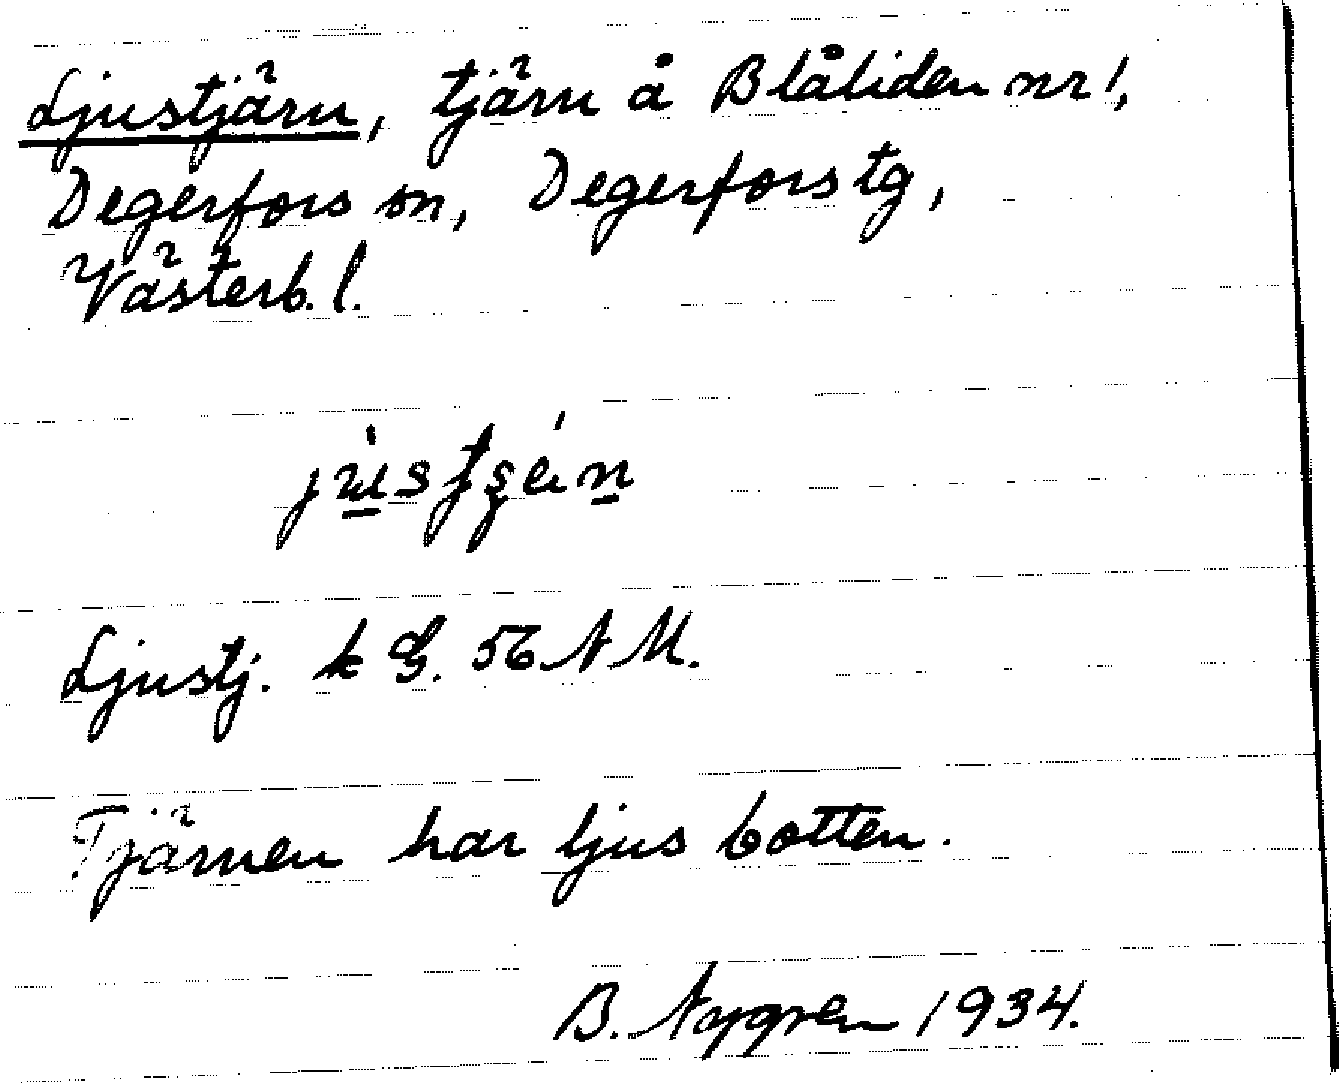 Ljustjärn, tjärn å Blåliden nr 1,
Degerfors sn, Degerfors tg,
Västerb. l.
Ljustj. k G. 56 N M.
Tjärnen har ljus botten.
B. Nygren 1934.